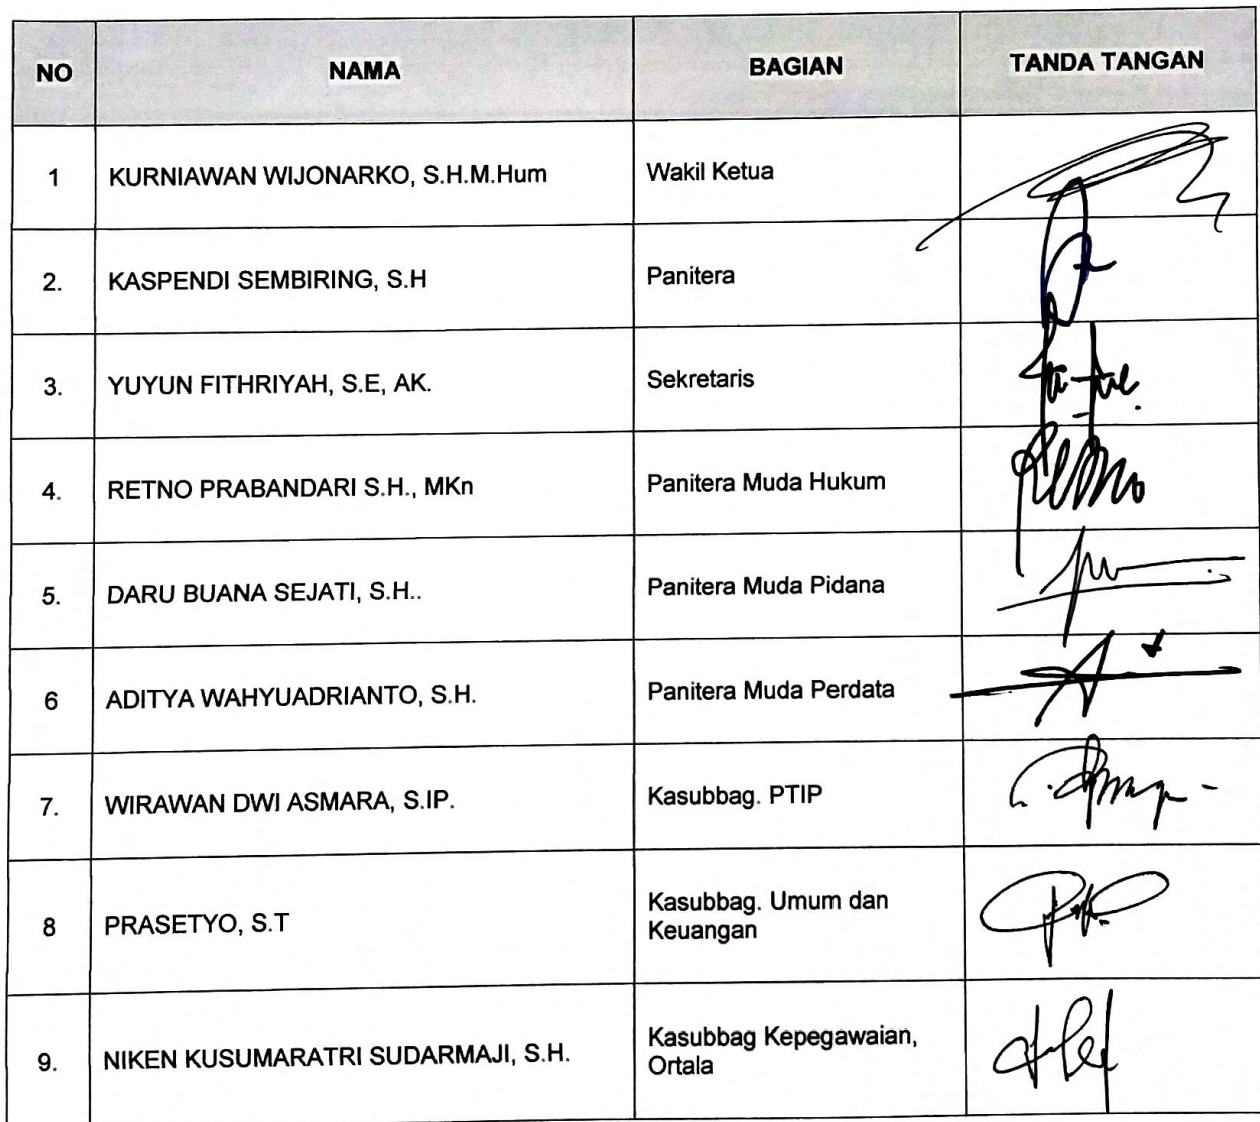 NO NAMA BAGIAN TANDA TANGAN
1 KURNIAWAN WIJONARKO, S.H.M.Hum Wakil Ketua
2. KASPENDI SEMBIRING, S.H Panitera
3. YUYUN FITHRIYAH, S.E, AK. Sekretaris
4. RETNO PRABANDARI S.H., MKn Panitera Muda Hukum
5. DARU BUANA SEJATI, S.H.. Panitera Muda Pidana
6 ADITYA WAHYUADRIANTO, S.H. Panitera Muda Perdata
7. WIRAWAN DWI ASMARA, S.IP. Kasubbag. PTIP
8 PRASETYO, S.T Kasubbag. Umum dan
Keuangan
9. NIKEN KUSUMARATRI SUDARMAJI, S.H. Kasubbag Kepegawaian,
Ortala